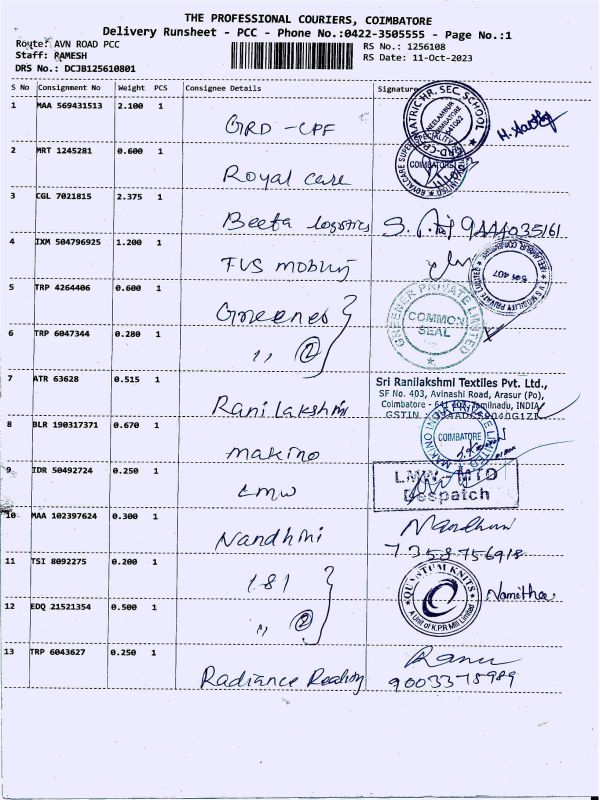 THE PROFESSIONAL COURIERS, COIMBATORE
Delivery Runsheet - PCC - Phone No.:0422-3505555 - Page No.:1
Route: AVN ROAD PCC RS No.: 1256108
Staff: RAMESH RS Date: 11-Oct-2023
DRS No.: DCJB125610801
S No Consignment No Weight PCS Consignee Details Signature
1 MAA 569431513 2.100 1 GRD -CPF
MATRIC HR. SEC. SCHOOL
2 MRT 1245281 0.600 1 Royal care
COIMBATORE
3 CGL 7021815 2.375 1 Beeta logistics 9444035161
4 IXM 504796925 1.200 1 TVS mobility
641 407
5 TRP 4264406 0.600 1 Greener
GREENER PRIVATE LIMITED
COMMON
SEAL
6 TRP 6047344 0.280 1 ,, 2
7 ATR 63628 0.515 1 Rani lakshmi
Sri Ranilakshmi Textiles Pvt. Ltd.,
SF No. 403, Avinashi Road, Arasur (Po),
Coimbatore - 641 407, Tamilnadu, INDIA
8 BLR 190317371 0.670 1 makino
COIMBATORE
9 IDR 50492724 0.250 1 LMW
LMW - MTD
Despatch
10 MAA 102397624 0.300 1 Nandhini
7358756918
11 TSI 8092275 0.200 1 181
QUANTUM KNITS
A Unit of K.P.R Mill Limited
Namitha
12 EDQ 21521354 0.500 1 ,, 2
13 TRP 6043627 0.250 1 Radiance Realty
9003375989